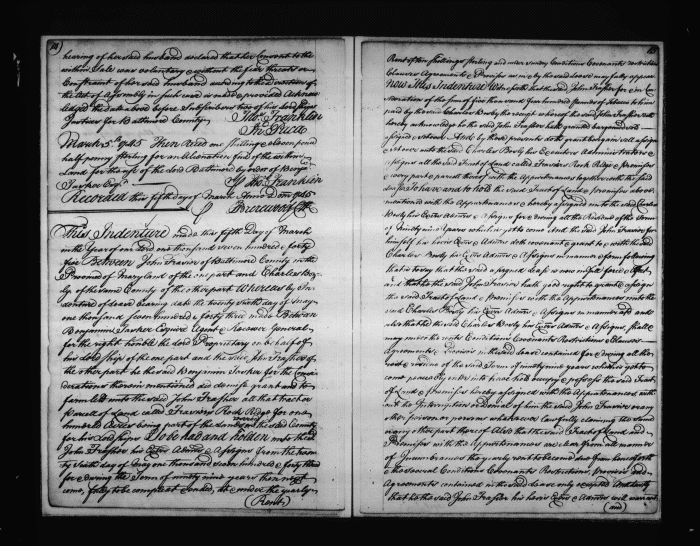 hearing of her said husband declared that her Consent to the
within Sale was voluntary & without the fear threats or
Constraint of her said husband according to the direction of
the Act of Assembly in such case made & provided Acknow
ledged the date above before us Subscribers two of his Lordships
Justices for Baltimore County
Thos. Franklin
March 5th 1745 Then Reced one Shilling & eleven pence
half penny Sterling for an Alienation fine of the within
Land for the use of the Lord Baltimore by order of Benja.
Tasker Esqr.
Thos. Franklin
Recorded this fifth day of March Anno Dom 1745
This Indenture made this fifth day of March
in the Year of our Lord one thousand seven hundred & forty
five Between John Frasier of Baltimore County in the
Province of Maryland of the one part and Charles
of the same County of the other part Whereas by In
denture of Lease bearing date the twenty sixth day of May
one thousand seven hundred & forty three made Between
Benjamin Tasker Esquire Agent & Receiver General
for the right honble the Lord Proprietary on behalf of
his Lordship of the one part and the said John Frasher of
the other part he the said Benjamin Tasker for the Consi
derations therein mentioned did demise grant and to
farm lett unto the said John Frasher all that tract or
parcell of Land called Frasiers Rock Ridge for one
hundred Acres being part of the Land in the said County
for his Lordships To have and to holden unto the sd
John Frasher his Exrs Admrs & Assigns from the twen
ty Sixth day of May one thousand seven hundred & forty three
for & during the Term of ninety nine years then next to
come, fully to be compleat & ended, at & under the yearly
(Rent)
Rent of ten Shillings Sterling and under Conditions Covenants
Clauses Agreements & Provisoes as in & by the said Lease may fully appear
Now This Indenture Witnesseth that the said John Frasher for & in Con
sideration of the Sum of five thousand hundred pounds of Tobacco to him
paid by the said Charles the receipt whereof the said John Frasher doth
hereby acknowledge he the said John Frasher hath granted bargained
assigned And by these presents doth grant bargain sell assign
unto the said Charles his Executors Administrators &
Assigns all the said Tract of Land called Frasiers Rock Ridge & premises
every part & parcell thereof with the Appurtenances together with the said
Lease To have and to hold the said Tract of Land & premises above
mentioned with the Appurtenances hereby assigned unto the said Charles
his Exrs Admrs & Assigns for & during all the Residue of the Term
of Ninety nine Years which is yet to come And the said John Frasier for
himself his heirs Exrs & Admrs doth covenant & grant to & with the said
Charles his Exrs Admrs & Assigns in manner & form following
that is to say that the said assigned Lease is now in full force & effect
and that he the said John Frasier hath good right to grant & assign
the said Tract of Land & Premises with the Appurtenances unto the
said Charles his Exrs Admrs & Assigns in manner aforesd and
also that he the said Charles his Exrs Admrs & Assigns, shall &
may under the rents Conditions Covenants Restrictions Clauses
Agreements & Provisoes in the said Lease contained for & during all the
rest & residue of the said Term of ninety nine years which is yet to
come peaceably enter into have hold occupy & possess the said Tract
of Land & Premises hereby assigned with the Appurtenances with
out the Interruption or Denial of him the said John Frasier or any
other person or persons whatsoever lawfully claiming the same
or any other part thereof Also that the said Tract of Land and
Premises with the Appurtenances are clear from all manner
of Incumbrances the yearly rent to become due from henceforth
& the several Conditions Covenants Restrictions provisoes and
Agreements contained in the said Lease only excepted And lastly
that he the said John Frasher his heirs Exrs & Admrs will warrant
(and)